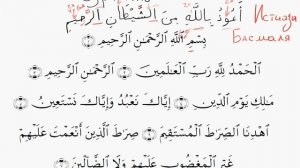 أَعُوذُ بِاللَّهِ مِنَ الشَّيْطَانِ الرَّجِيمِ Истиаза
بِسْمِ اللَّهِ الرَّحْمَٰنِ الرَّحِيمِ ۝ Басмаля
الْحَمْدُ لِلَّهِ رَبِّ الْعَالَمِينَ ۝ الرَّحْمَٰنِ الرَّحِيمِ ۝
مَالِكِ يَوْمِ الدِّينِ ۝ إِيَّاكَ نَعْبُدُ وَإِيَّاكَ نَسْتَعِينُ ۝
اهْدِنَا الصِّرَاطَ الْمُسْتَقِيمَ ۝ صِرَاطَ الَّذِينَ أَنْعَمْتَ عَلَيْهِمْ
غَيْرِ الْمَغْضُوبِ عَلَيْهِمْ وَلَا الضَّالِّينَ ۝